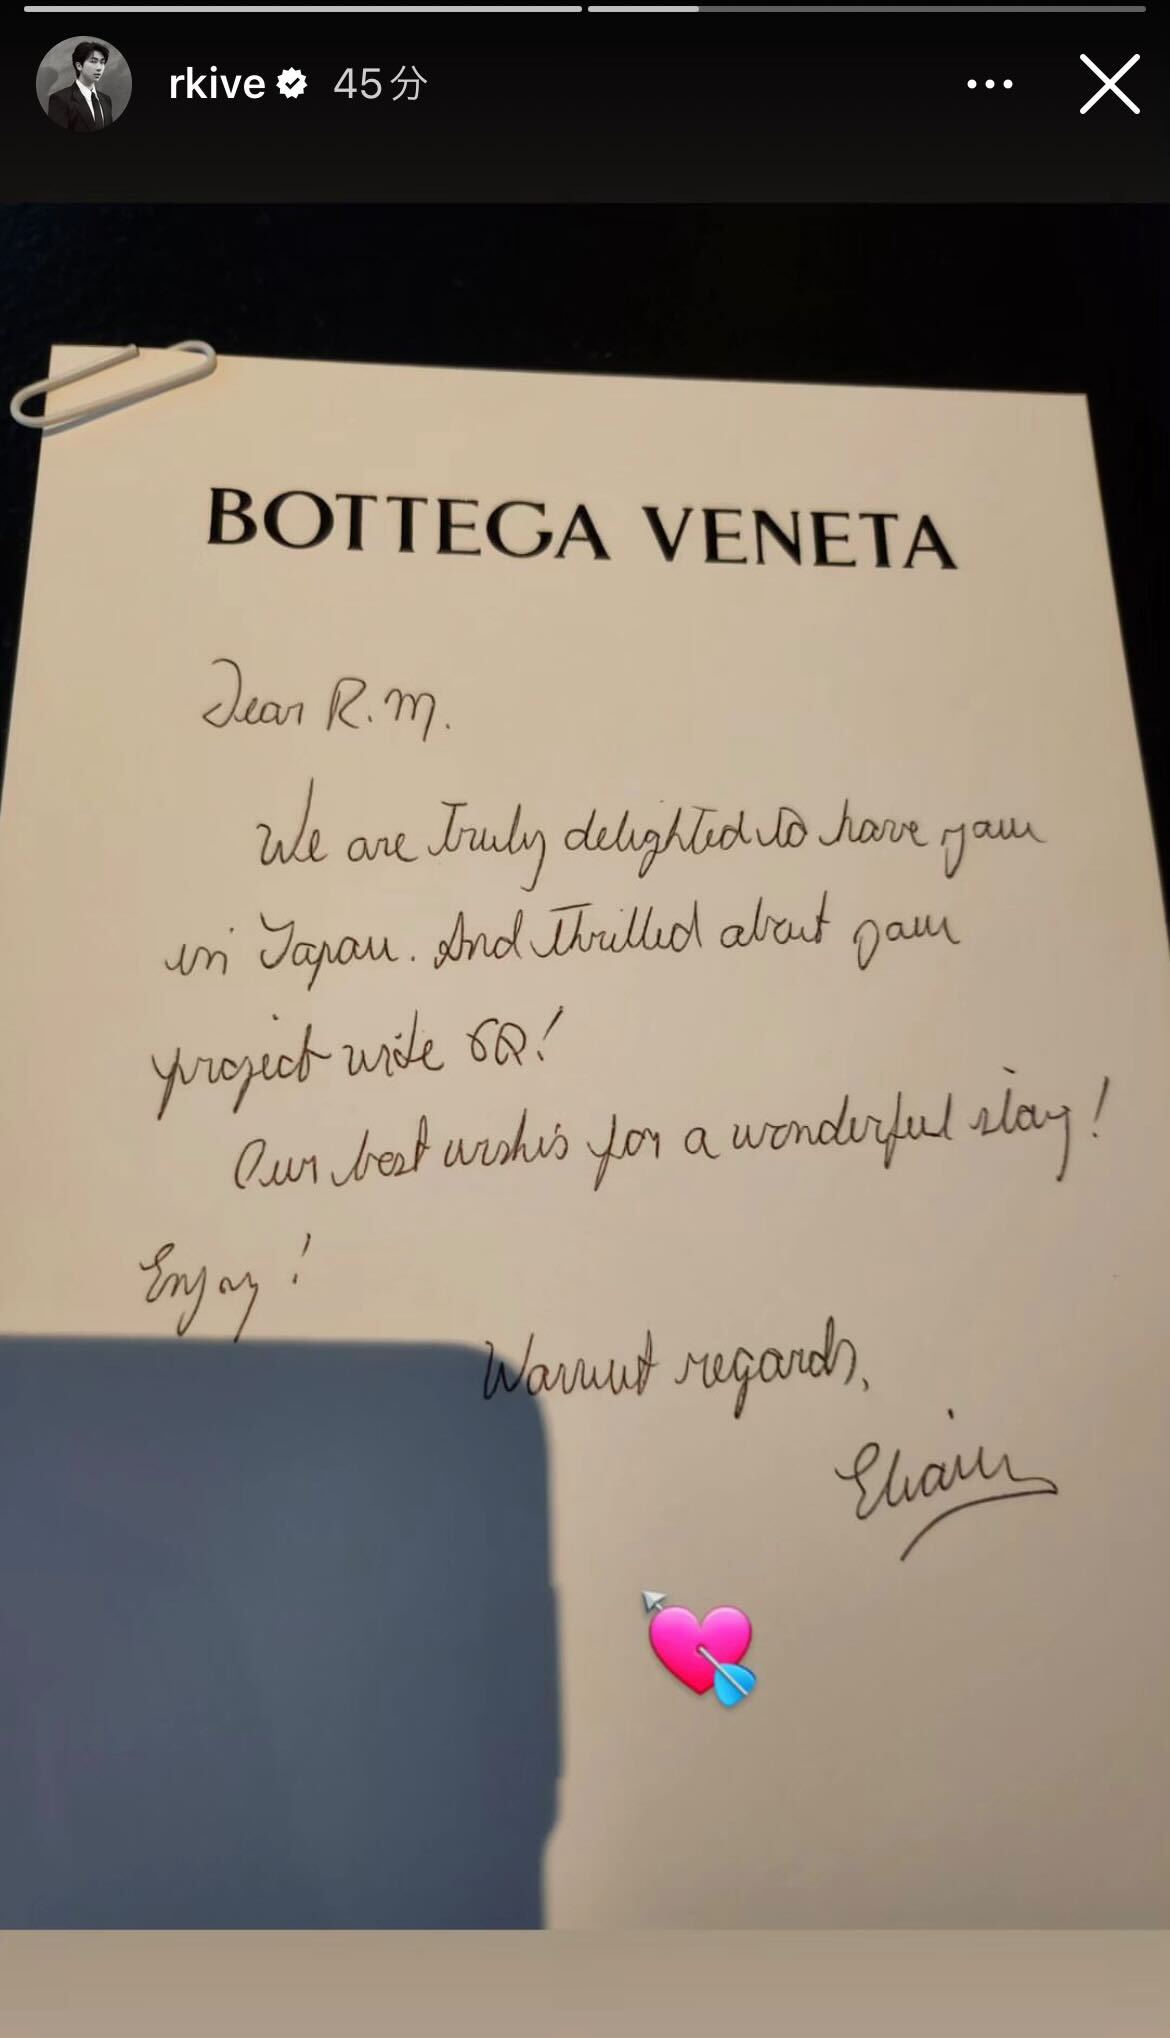 rkive 45分
BOTTEGA VENETA
Dear R.M.
We are truly delighted to have you
in Japan. And thrilled about your
project with GQ!
Our best wishes for a wonderful stay!
Enjoy!
Warmest regards,